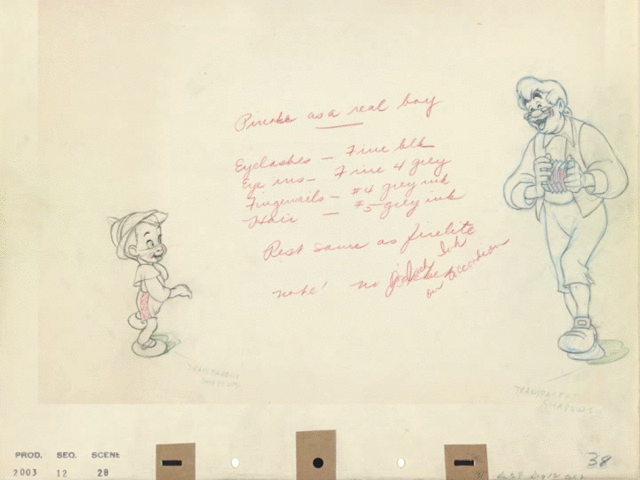 Pinoke as a real boy
Eyelashes – Fine blk
Eye ins – Fine 4 grey
Fingernails – #4 grey ink
Hair – #5 grey ink
Rest same as firelite
Note! No
on accordion
TRANSPARENT
SHADOWS
TRANSPARENT
SHADOWS
PROD. SEQ. SCENE
2003 12 28
38